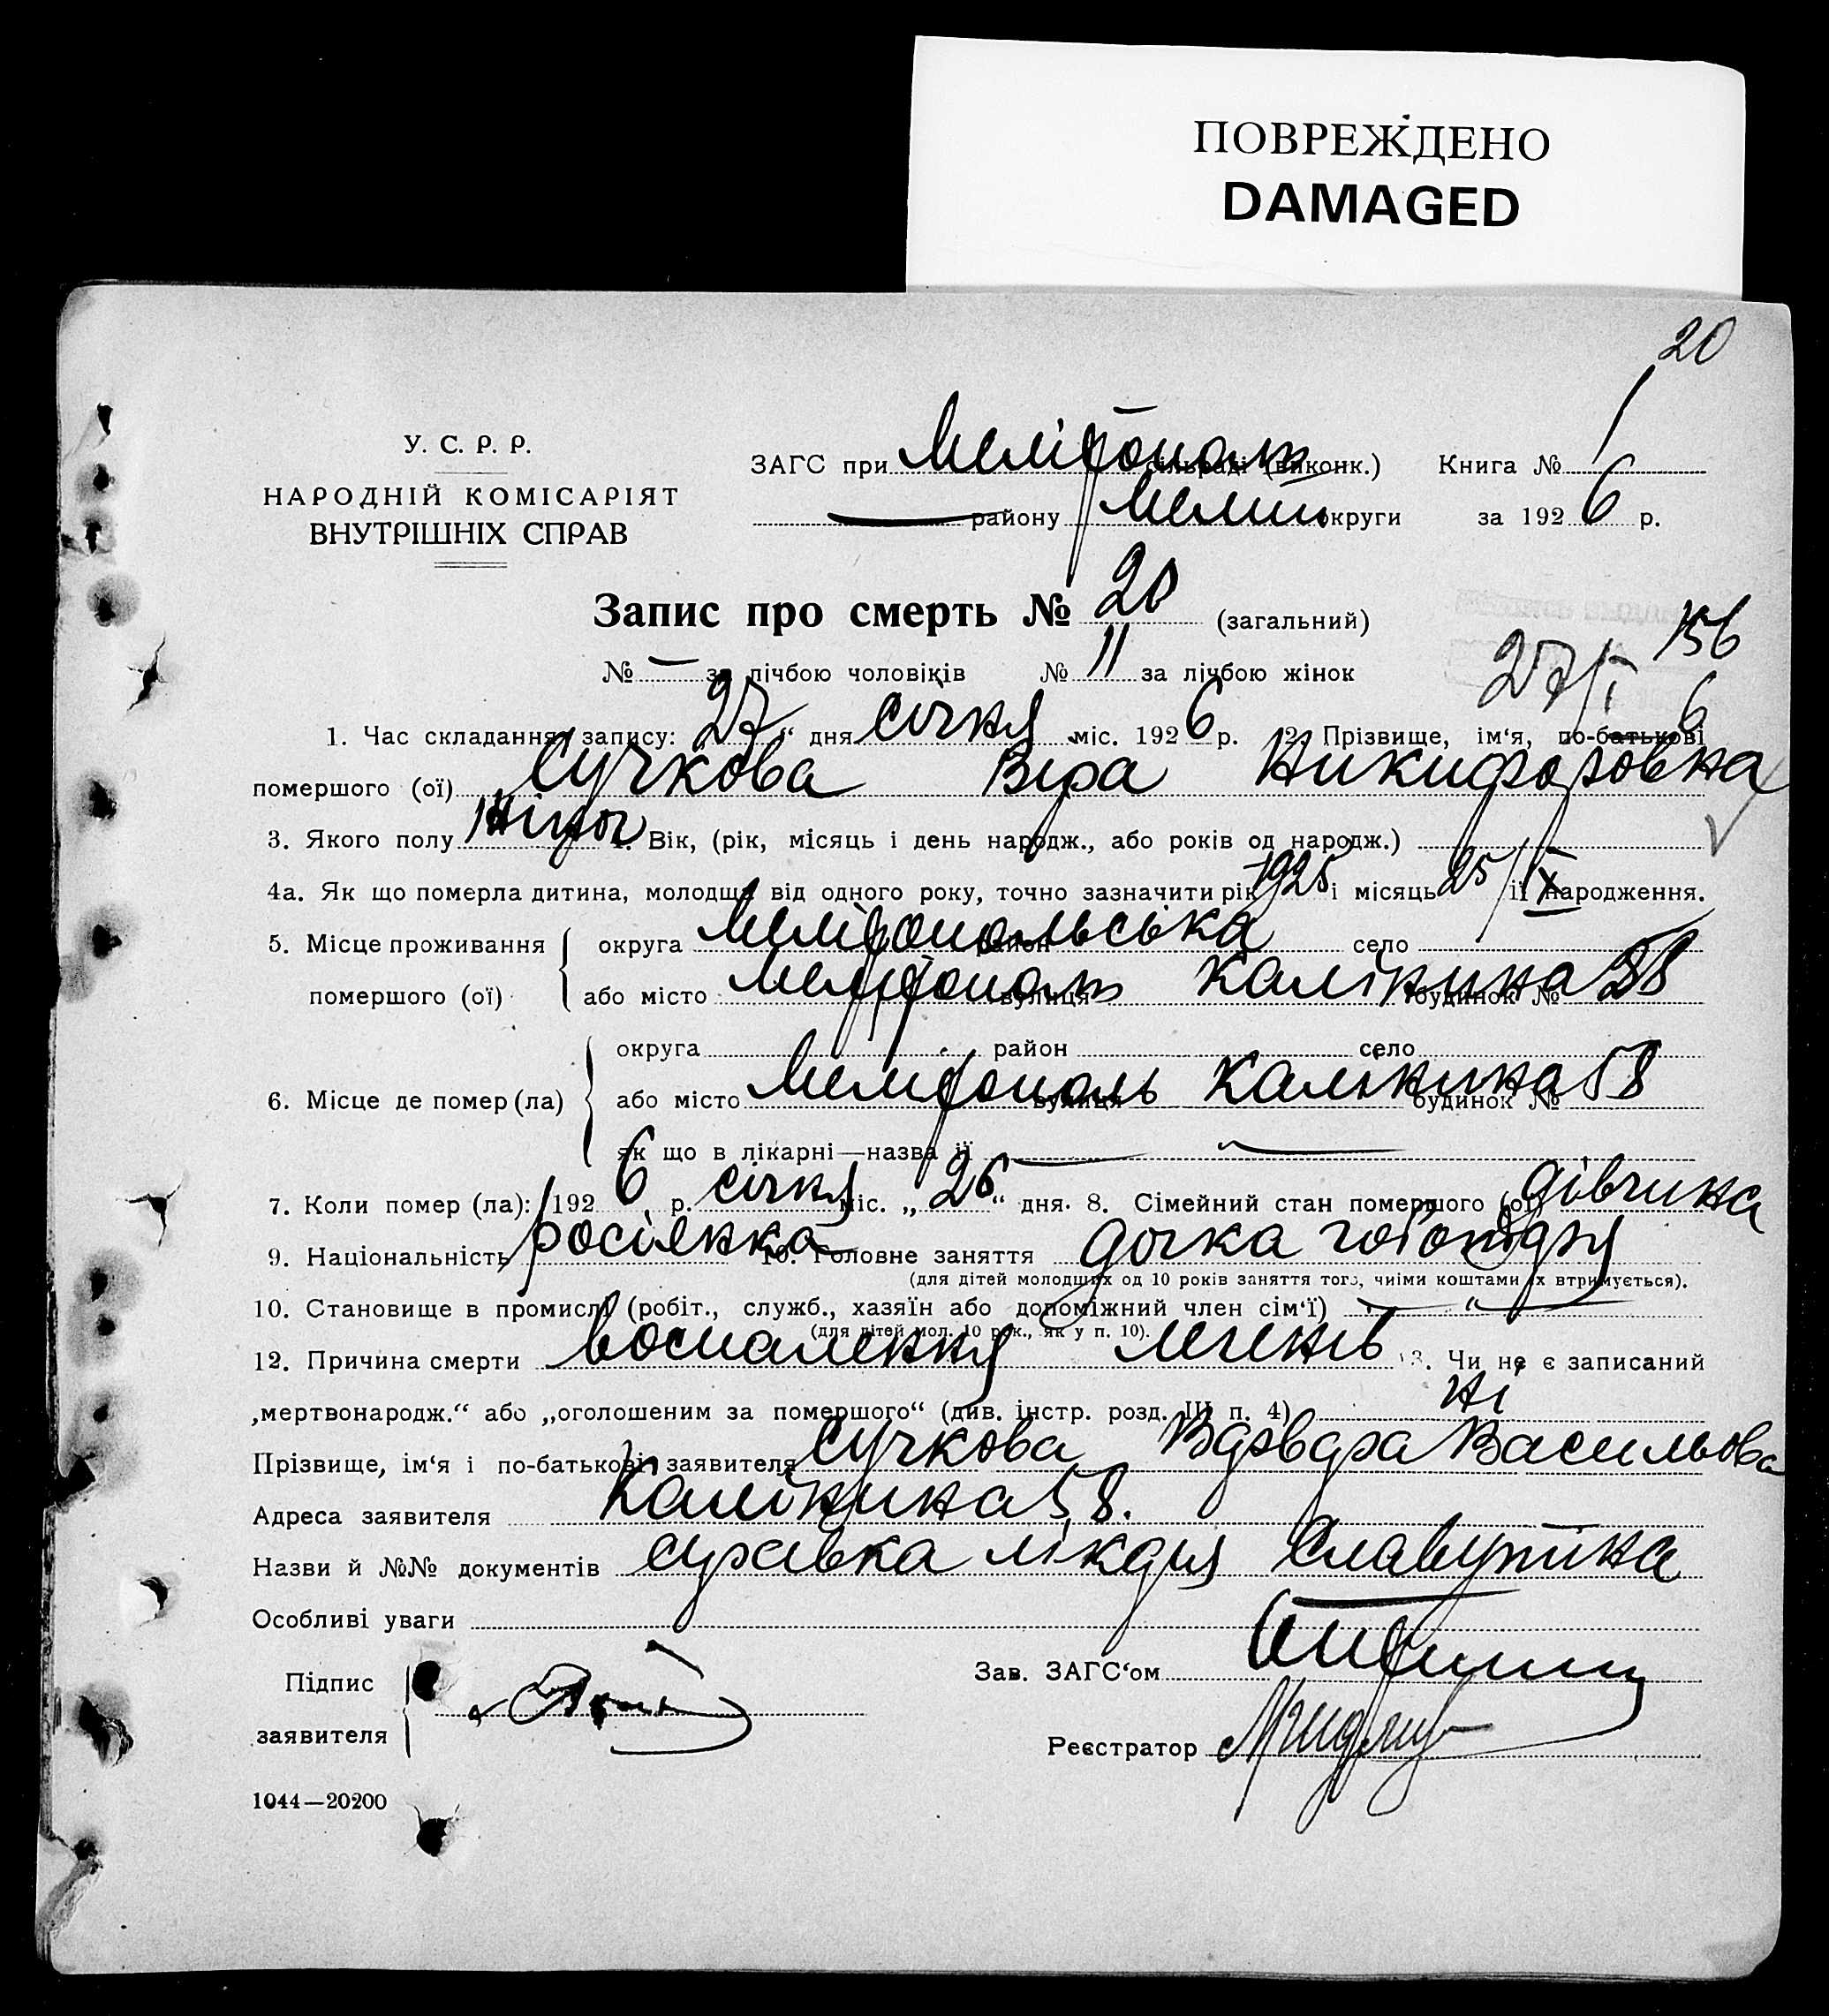 ПОВРЕЖДЕНО
DAMAGED
20
У. С. Р. Р.
НАРОДНІЙ КОМІСАРІЯТ
ВНУТРІШНІХ СПРАВ
ЗАГС при Мелітополь сільраді (виконк.) Книга № 1
— району Мелит округи за 1926 р.
Запис про смерть № 20 (загальний)
№ — за лічбою чоловіків № 11 за лічбою жінок
156
27/I 6
1. Час складання запису: 27 “ дня січня міс. 1926 р. 2. Прізвище, ім‘я, по-батькові
помершого (ої) Сучкова Віра Никифоровна
3. Якого полу Жіноч 4. Вік, (рік, місяць і день народж., або років од народж.)
4а. Як що померла дитина, молодща від одного року, точно зазначити рік 1925 і місяць 25/IX її народження.
5. Місце проживання округа Мелітопольська район село
помершого (ої) або місто Мелітополь вулиця Калініна будинок № 58
округа район село
6. Місце де помер (ла) або місто Мелітополь вулиця Калініна будинок № 58
як що в лікарні—назва її —
7. Коли помер (ла): 1926 р. січня міс. „26“ дня. 8. Сімейний стан помершого (ої) дівчина
9. Національність росіянка 10. Головне заняття дочка
(для дітей молодщих од 10 років заняття того, чиїми коштами їх втримується).
10. Становище в промислі (робіт., служб., хазяїн або допоміжний член сім‘ї) — “ —
(для дітей мол. 10 рок., як у п. 10).
12. Причина смерти воспалення легенів 13. Чи не є записаний
„мертвонародж.“ або „оголошеним за помершого“ (див. інстр. розд. III п. 4) ні
Прізвище, ім‘я і по-батькові заявителя Сучкова Варвара Васильова
Адреса заявителя Калініна 58.
Назви й №№ документів справка лікаря Славутіна
Особливі уваги
Підпис
заявителя
Зав. ЗАГС‘ом
Реєстратор
1044—20200